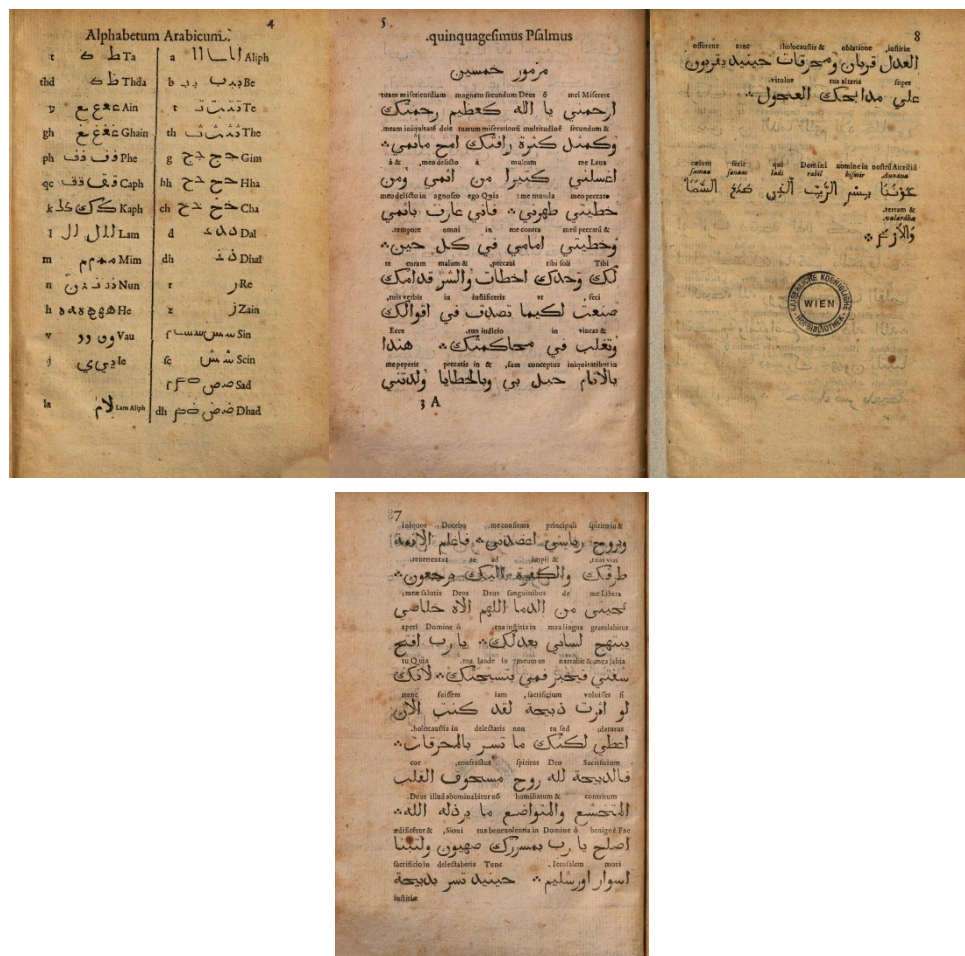 4
Alphabetum Arabicum.
t ط Ta a ا Aliph
thd ظ Thda b ب Be
ع Ain t ت Te
gh غ Ghain th ث The
ph ف Phe g ج Gim
qc ق Caph hh ح Hha
k ك Kaph ch خ Cha
l ل Lam d د Dal
m م Mim dh ذ Dhal
n ن Nun r ر Re
h ه He z ز Zain
v و Vau س Sin
j ي Ie sc ش Scin
ص Sad
la لا Lam Aliph dh ض Dhad
5
.quinquagesimus Psalmus
مزمور خمسين
tuam misericordiam magnam secundum Deus ô mei Miserere
ارحمني يا الله كعظيم رحمتك
.meam iniquitatē dele tuarum miserationū multitudinē secundum &
وكمثل كثرة رافتك امح ماثمي
à & ,meo delicto à multum me Laua
اغسلني كثيرا من اثمي ومن
meo delicto in agnosco ego Quia .me munda meo peccato
خطيتي طهرني فاني عارف باثمي
.tempore omni in me contra meū peccatū &
وخطيتي امامي في كل حين
te coram malum & ,peccaui tibi soli Tibi
لك وحدك اخطات والشر قدامك
,tuis verbis in iustificeris vt feci
صنعت لكيما تصدق في اقوالك
Ecce .tuo iudicio in vincas &
وتغلب في محاكمتك هندا
me peperit peccatis in & ,sum conceptus iniquitatibus in
بالاثام حبل بي وبالخطايا ولدتني
3 A
8
offerent tunc ,holocaustis & oblatione ,iustitiæ
العدل قربان ومحرقات حينيد يقربون
.vitulos tua altaria super
علي مدابحك العجول
cælum fecit qui Domini nomine in nostrū Auxiliū
samaa sanaa ladi rabil bismir Aununa
عوننا بسر الرب الذي صنع السما
.terram &
.valardha
والارض
KAISERLICHE KOENIGLICHE HOFBIBLIOTHEK
WIEN
7
iniquos Docebo .me confirma principali spiritu in &
وبروح رياسي اعضدني فاعلم الاثمة
.reuertentur te ad impij & ,tuas vias
طرقك والكفرة اليك يرجعون
,meæ salutis Deus Deus sanguinibus de me Libera
نجيني من الدما اللهم الاه خلاصي
aperi Domine ô .tua iustitia in mea lingua gratulabitur
يبتهج لساني بعدلك يا رب افتح
tu Quia .tua laude in meum os narrabit & mea labia
شفتي فيخبر فمي بتسبحتك لانك
nunc fuissem iam ,sacrificium voluisses si
لو اثرت ذبيحة لقد كنت الان
.holocaustis in delectatis non tu sed ,daturus
اعطي لكنك ما تسر بالمحرقات
cor ,confractus spiritus Deo Sacrificium
فالدبيحة لله روح مسحوق القلب
.Deus illud abominabitur nō humiliatum & contritum
المتخشع والمتواضع ما يرذله الله
ædificetur & ,Sioni tua beneuolentia in Domine ô benignè Fac
اصلح يا رب بمسررك صهيون ولتبنا
sacrificio in delectaberis Tunc .Ierusalem muri
اسوار اورشليم حينيد تسر بدبيحة
iustitiæ